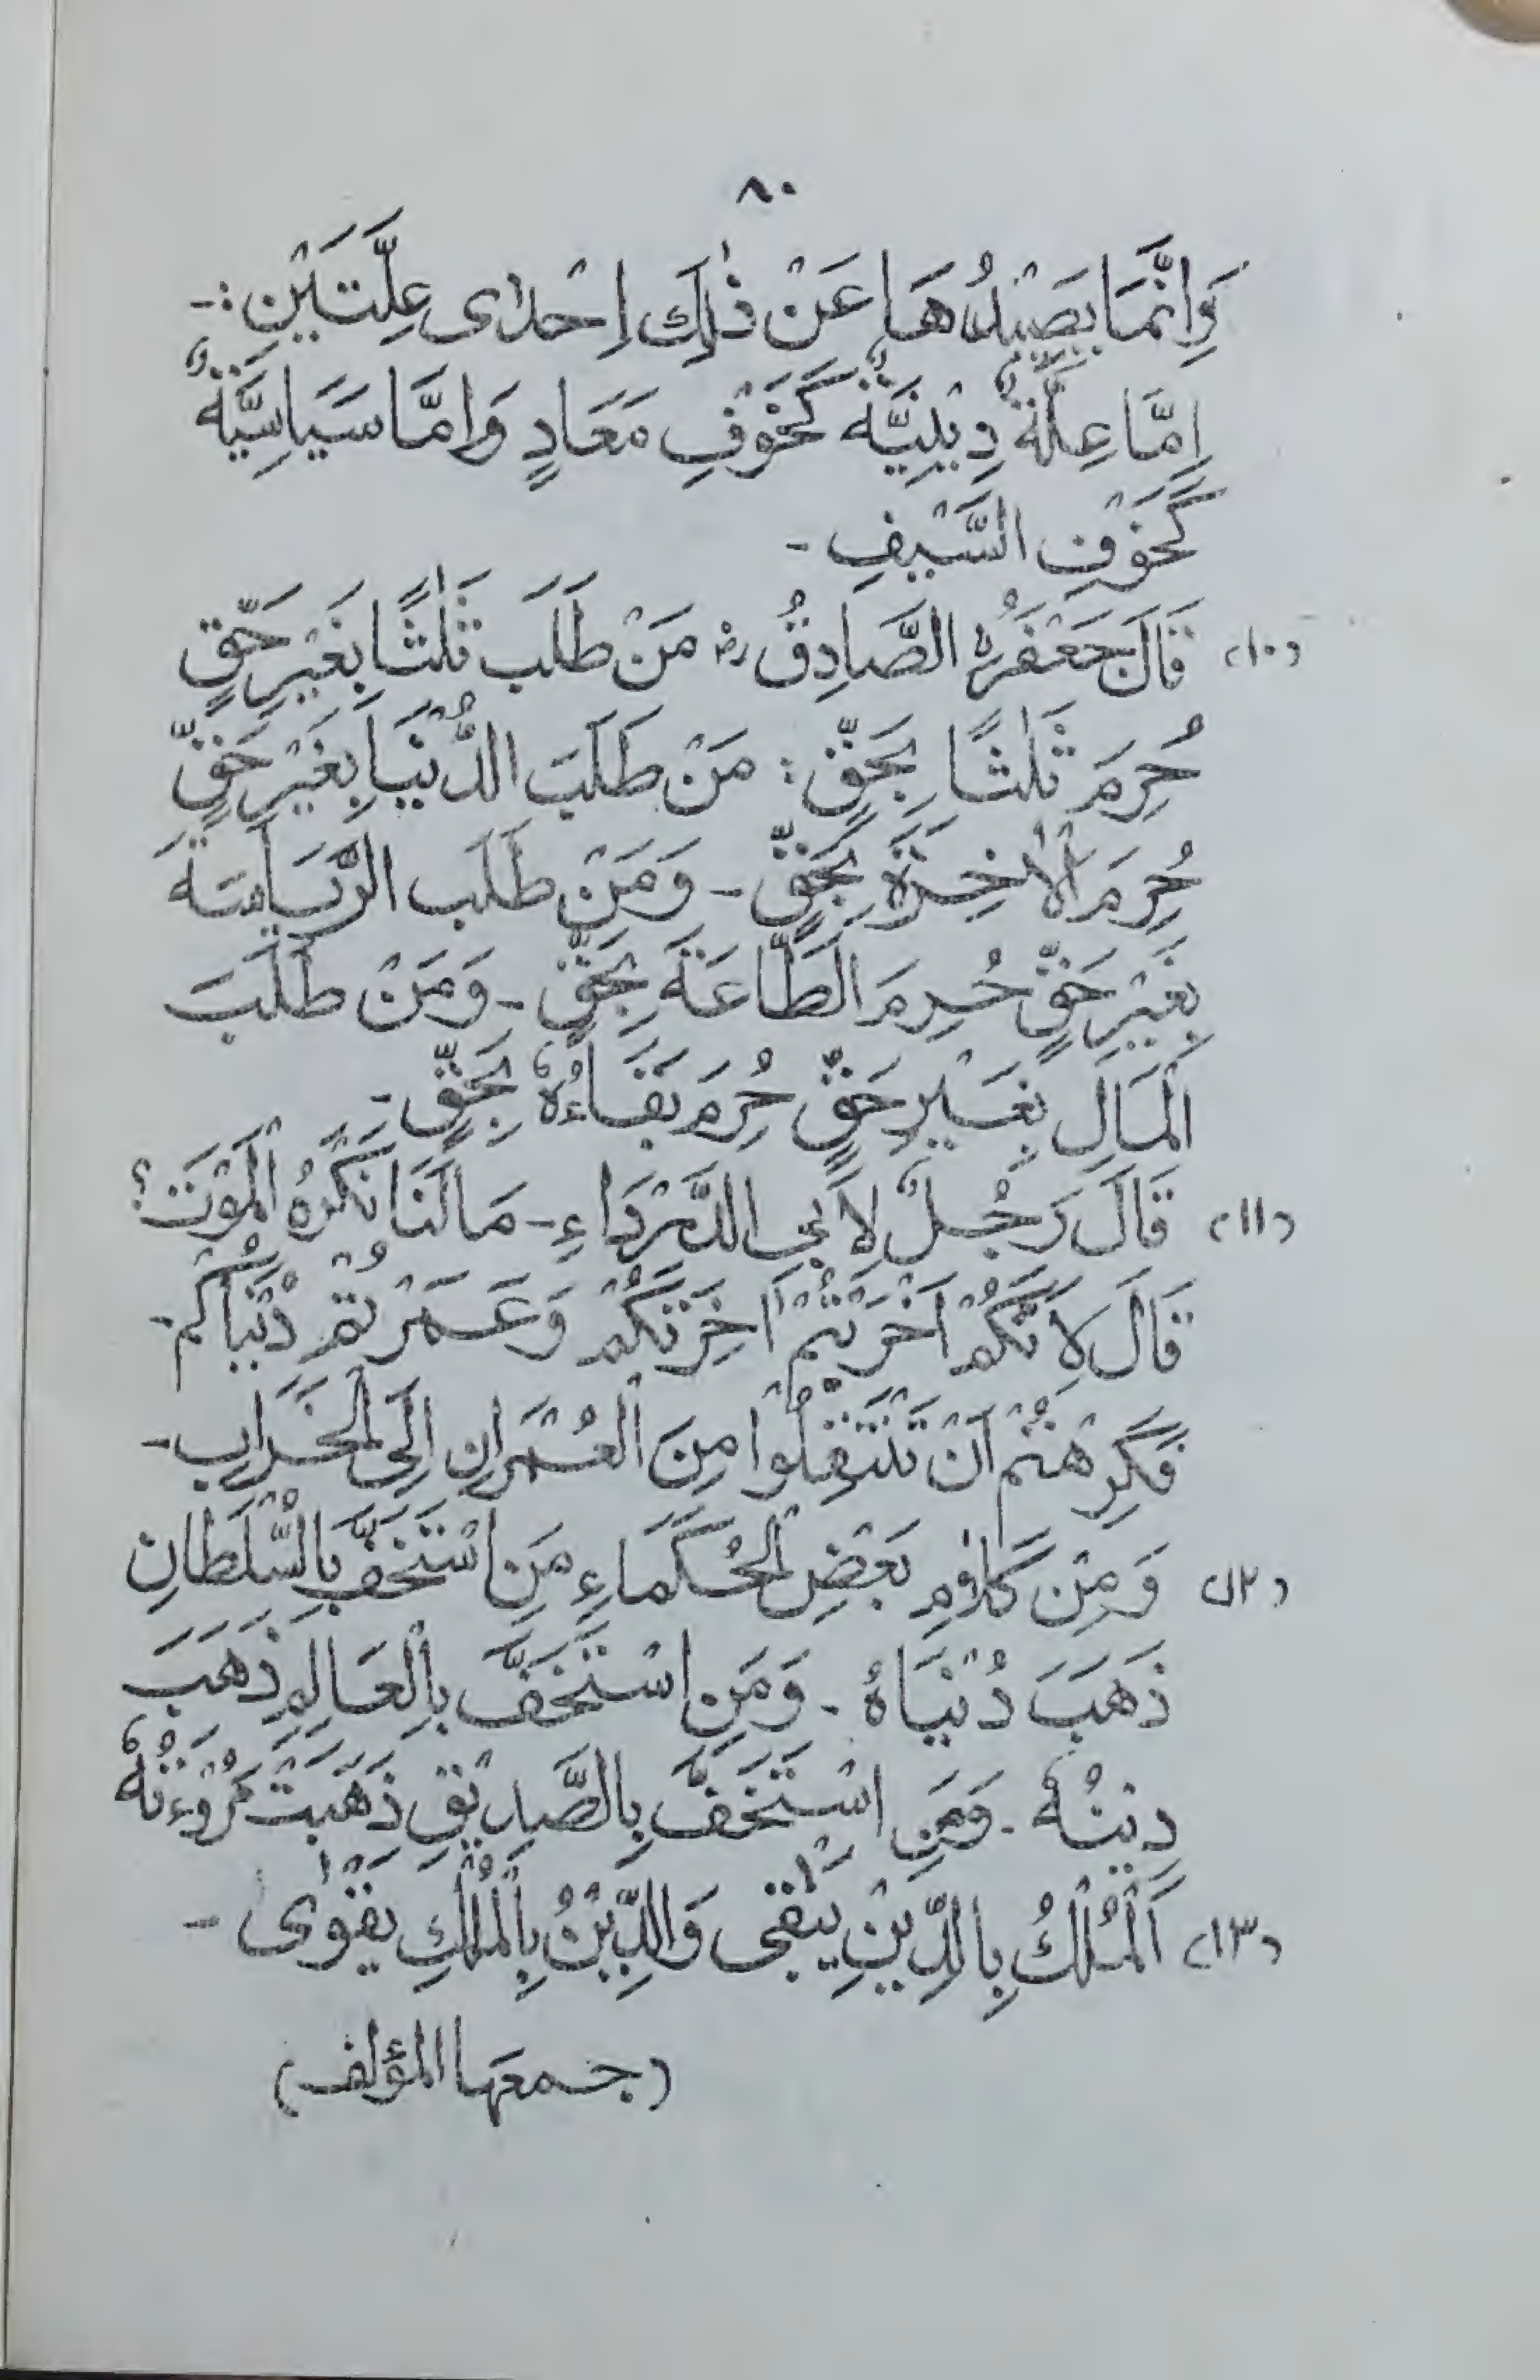 ٨٠
وَاِنَّمَا يَصُدُّهَا عَنْ ذٰلِكَ اِحْدٰى عِلَّتَيْنِ :-
اِمَّا عِلَّةٌ دِيْنِيَّةٌ كَخَوْفِ مَعَادٍ وَاِمَّا سَيَاسِيَّةٌ
كَخَوْفِ السَّيْفِ -
(١٠) قَالَ جَعْفَرُ الصَّادِقُ رض مَنْ طَلَبَ ثَلٰثًا بِغَيْرِ حَقٍّ
حُرِمَ ثَلٰثًا بِحَقٍّ : مَنْ طَلَبَ الدُّنْيَا بِغَيْرِ حَقٍّ
حُرِمَ الْاٰخِرَةَ بِحَقٍّ - وَمَنْ طَلَبَ الرِّيَاسَةَ
بِغَيْرِ حَقٍّ حُرِمَ الطَّاعَةَ بِحَقٍّ - وَمَنْ طَلَبَ
الْمَالَ بِغَيْرِ حَقٍّ حُرِمَ بَقَاءُهٗ بِحَقٍّ -
(١١) قَالَ رَجُلٌ لِاَبِي الدَّرْدَاءِ - مَا لَنَا نَكْرَهُ الْمَوْتَ؟
قَالَ لِاَنَّكُمْ اَخْرَبْتُمْ اٰخِرَتَكُمْ وَعَمَرْتُمْ دُنْيَاكُمْ -
فَكَرِهْتُمْ اَنْ تَنْتَقِلُوْا مِنَ الْعُمْرَانِ اِلَى الْخَرَابِ -
(١٢) وَمِنْ كَلَامِ بَعْضِ الْحُكَمَاءِ مَنِ اسْتَخَفَّ بِالسُّلْطَانِ
ذَهَبَ دُنْيَاهُ - وَمَنِ اسْتَخَفَّ بِالْعَالِمِ ذَهَبَ
دِيْنُهٗ - وَمَنِ اسْتَخَفَّ بِالصَّدِيْقِ ذَهَبَتْ مُرُوْءَتُهٗ
(١٣) اَلْمُلْكُ بِالدِّيْنِ يَبْقٰى وَالدِّيْنُ بِالْمُلْكِ يَقْوٰى -
(جمعها المؤلف)